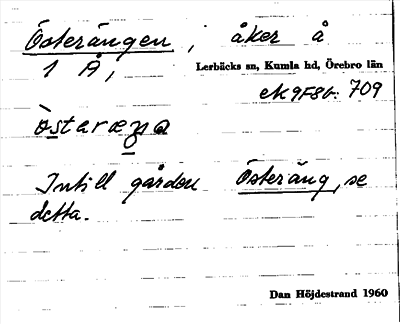 Österängen, åker å
1 Å,
Lerbäcks sn, Kumla hd, Örebro län
ek 9F8b: 709
òstaræŋa
Intill gården Österäng, se
detta.
Dan Höjdestrand 1960